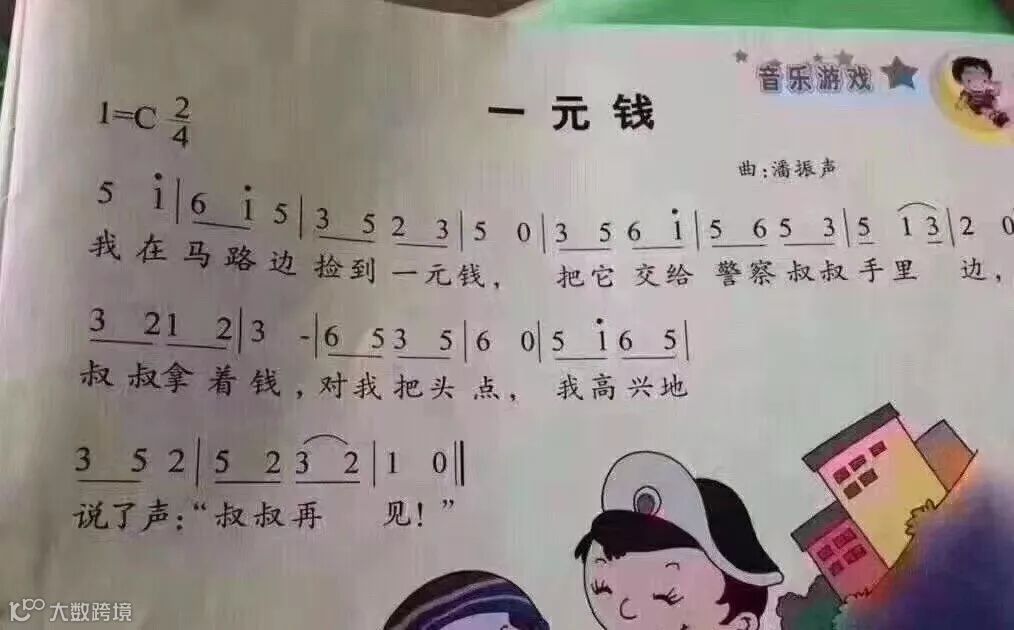 音乐游戏
一元钱
1=C 2/4
曲：潘振声
5 i̇ | 6 i̇ 5 | 3 5 2 3 | 5 0 | 3 5 6 i̇ | 5 6 5 3 | 5 1 3 | 2 0
我在马路边捡到一元钱，把它交给警察叔叔手里边，
3 2 1 2 | 3 - | 6 5 3 5 | 6 0 | 5 i̇ 6 5 |
叔叔拿着钱，对我把头点，我高兴地
3 5 2 | 5 2 3 2 | 1 0 ‖
说了声：“叔叔再见！”
大数跨境